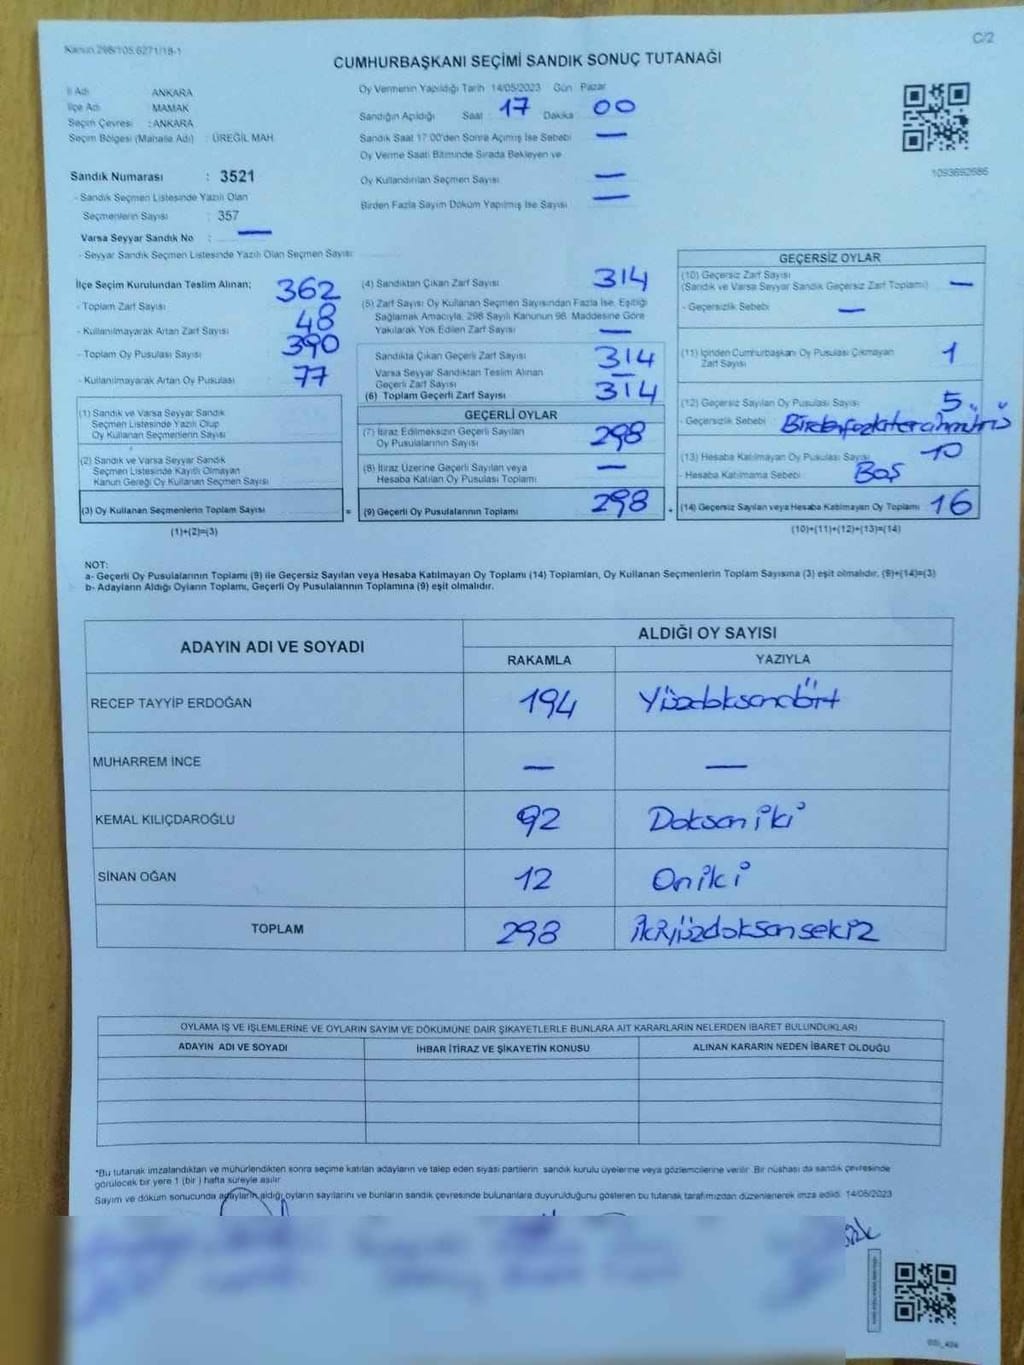 Kanun 298/105.6271/18-1
C/2
CUMHURBAŞKANI SEÇİMİ SANDIK SONUÇ TUTANAĞI
İl Adı ANKARA
İlçe Adı MAMAK
Seçim Çevresi : ANKARA
Seçim Bölgesi (Mahalle Adı) : ÜREĞİL MAH.
Sandık Numarası : 3521
- Sandık Seçmen Listesinde Yazılı Olan
Seçmenlerin Sayısı : 357
Varsa Seyyar Sandık No : —
- Seyyar Sandık Seçmen Listesinde Yazılı Olan Seçmen Sayısı:
Oy Vermenin Yapıldığı Tarih 14/05/2023 Gün Pazar
Sandığın Açıldığı Saat 17 Dakika 00
Sandık Saat 17.00'den Sonra Açılmış İse Sebebi —
Oy Verme Saati Bitiminde Sırada Bekleyen ve
Oy Kullandırılan Seçmen Sayısı —
Birden Fazla Sayım Döküm Yapılmış İse Sayısı —
1093692686
İlçe Seçim Kurulundan Teslim Alınan;
- Toplam Zarf Sayısı 362
- Kullanılmayarak Artan Zarf Sayısı 48
- Toplam Oy Pusulası Sayısı 390
- Kullanılmayarak Artan Oy Pusulası 77
(1) Sandık ve Varsa Seyyar Sandık
Seçmen Listesinde Yazılı Olup
Oy Kullanan Seçmenlerin Sayısı
(2) Sandık ve Varsa Seyyar Sandık
Seçmen Listesinde Kayıtlı Olmayan
Kanun Gereği Oy Kullanan Seçmen Sayısı
(3) Oy Kullanan Seçmenlerin Toplam Sayısı =
(1)+(2)=(3)
(4) Sandıktan Çıkan Zarf Sayısı 314
(5) Zarf Sayısı Oy Kullanan Seçmen Sayısından Fazla İse, Eşitliği
Sağlamak Amacıyla, 298 Sayılı Kanunun 98. Maddesine Göre
Yakılarak Yok Edilen Zarf Sayısı —
Sandıkta Çıkan Geçerli Zarf Sayısı 314
Varsa Seyyar Sandıktan Teslim Alınan
Geçerli Zarf Sayısı —
(6) Toplam Geçerli Zarf Sayısı 314
GEÇERLİ OYLAR
(7) İtiraz Edilmeksizin Geçerli Sayılan
Oy Pusulalarının Sayısı 298
(8) İtiraz Üzerine Geçerli Sayılan veya
Hesaba Katılan Oy Pusulası Toplamı —
(9) Geçerli Oy Pusulalarının Toplamı 298 +
GEÇERSİZ OYLAR
(10) Geçersiz Zarf Sayısı
(Sandık ve Varsa Seyyar Sandık Geçersiz Zarf Toplamı) —
- Geçersizlik Sebebi: —
(11) İçinden Cumhurbaşkanı Oy Pusulası Çıkmayan
Zarf Sayısı 1
(12) Geçersiz Sayılan Oy Pusulası Sayısı 5
- Geçersizlik Sebebi: Birden fazla tercih mührü
(13) Hesaba Katılmayan Oy Pusulası Sayısı 10
- Hesaba Katılmama Sebebi: Boş
(14) Geçersiz Sayılan veya Hesaba Katılmayan Oy Toplamı 16
(10)+(11)+(12)+(13)=(14)
NOT:
a- Geçerli Oy Pusulalarının Toplamı (9) ile Geçersiz Sayılan veya Hesaba Katılmayan Oy Toplamı (14) Toplamları, Oy Kullanan Seçmenlerin Toplam Sayısına (3) eşit olmalıdır. (9)+(14)=(3)
b- Adayların Aldığı Oyların Toplamı, Geçerli Oy Pusulalarının Toplamına (9) eşit olmalıdır.
ADAYIN ADI VE SOYADI ALDIĞI OY SAYISI
RAKAMLA YAZIYLA
RECEP TAYYİP ERDOĞAN 194 Yüzdoksandört
MUHARREM İNCE — —
KEMAL KILIÇDAROĞLU 92 Doksan iki
SİNAN OĞAN 12 Oniki
TOPLAM 298 İkiyüzdoksansekiz
OYLAMA İŞ VE İŞLEMLERİNE VE OYLARIN SAYIM VE DÖKÜMÜNE DAİR ŞİKAYETLERLE BUNLARA AİT KARARLARIN NELERDEN İBARET BULUNDUKLARI
ADAYIN ADI VE SOYADI İHBAR İTİRAZ VE ŞİKAYETİN KONUSU ALINAN KARARIN NEDEN İBARET OLDUĞU
*Bu tutanak imzalandıktan ve mühürlendikten sonra seçime katılan adayların ve talep eden siyasi partilerin sandık kurulu üyelerine veya gözlemcilerine verilir. Bir nüshası da sandık çevresinde
görülecek bir yere 1 (bir) hafta süreyle asılır.
Sayım ve döküm sonucunda adayların aldığı oyların sayılarını ve bunların sandık çevresinde bulunanlara duyurulduğunu gösteren bu tutanak tarafımızdan düzenlenerek imza edildi. 14/05/2023